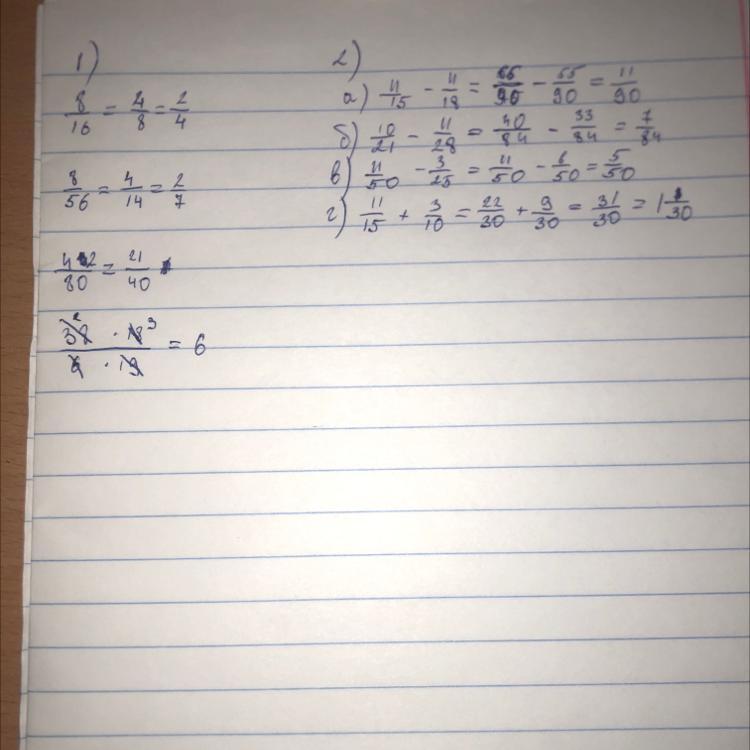 1)
8/16 = 4/8 = 2/4
8/56 = 4/14 = 2/7
42/80 = 21/40
38² · 18³ / 6 · 19 = 6
2)
а) 11/15 - 11/18 = 66/90 - 55/90 = 11/90
б) 10/21 - 11/28 = 40/84 - 33/84 = 7/84
в) 11/50 - 3/25 = 11/50 - 6/50 = 5/50
г) 11/15 + 3/10 = 22/30 + 9/30 = 31/30 = 1 1/30